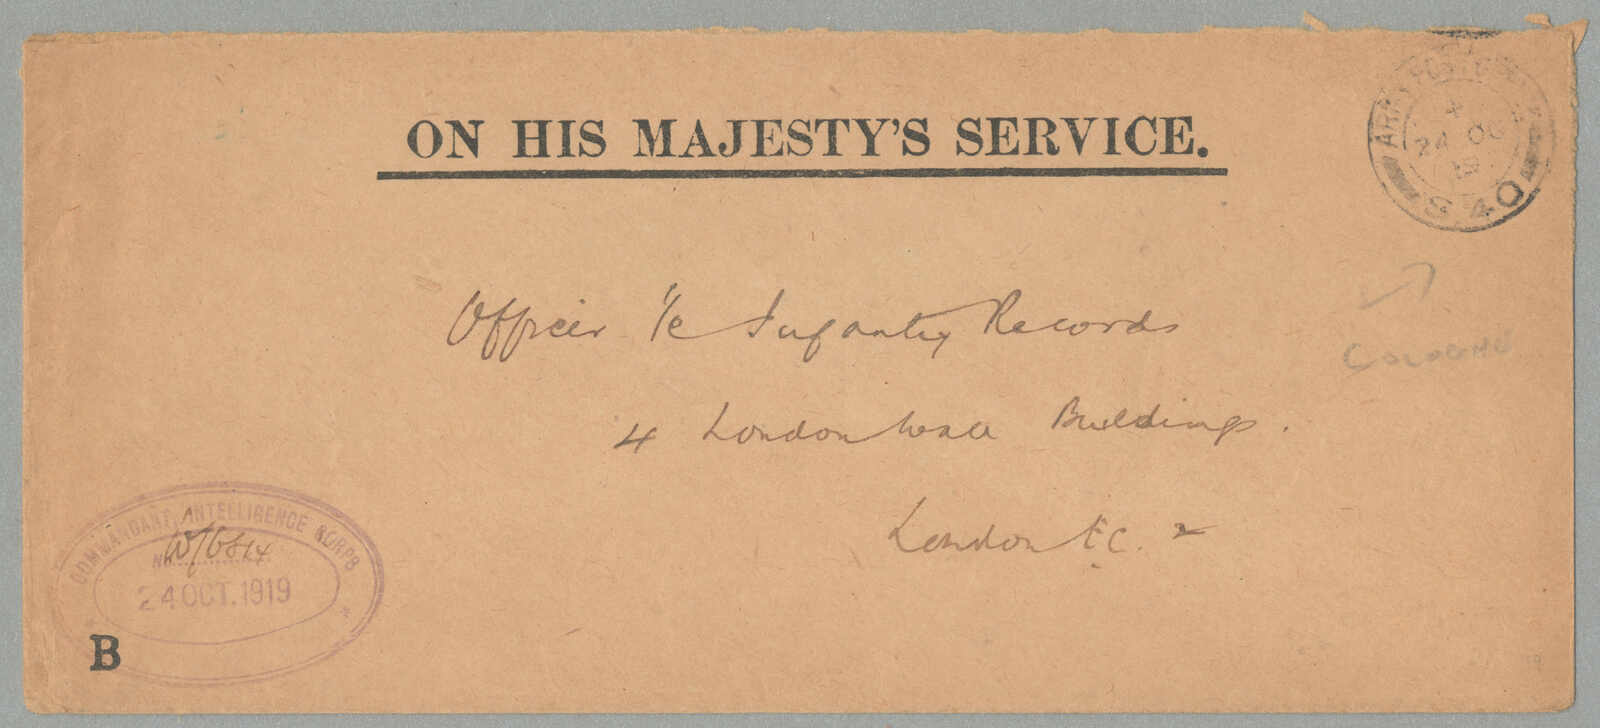 ON HIS MAJESTY'S SERVICE.
ARMY POST OFFICE
24 OC
19
S 40
Officer i/c Infantry Records
COLOGNE
4 London Wall Buildings.
London E.C. 2
COMMANDANT, INTELLIGENCE CORPS
No.
24 OCT. 1919
B